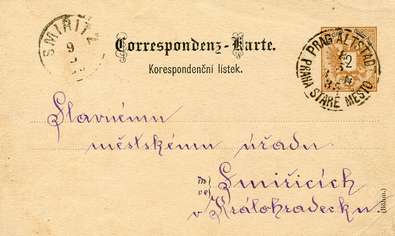 SMIŘITZ
9
Correspondenz-Karte.
Korespondenční lístek.
PRAG ALTSTADT
PRAHA STARÉ MĚSTO
2
Slavnému
městskému úřadu
Smiřicích
v Královéhradecku.
(Böhm.)